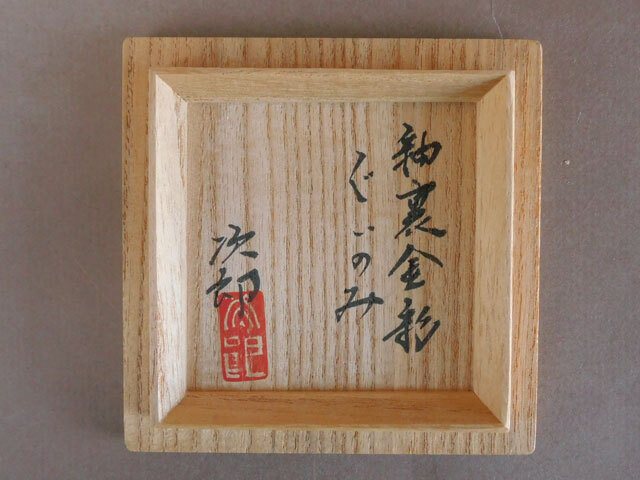 釉裏金彩
ぐいのみ
次郎